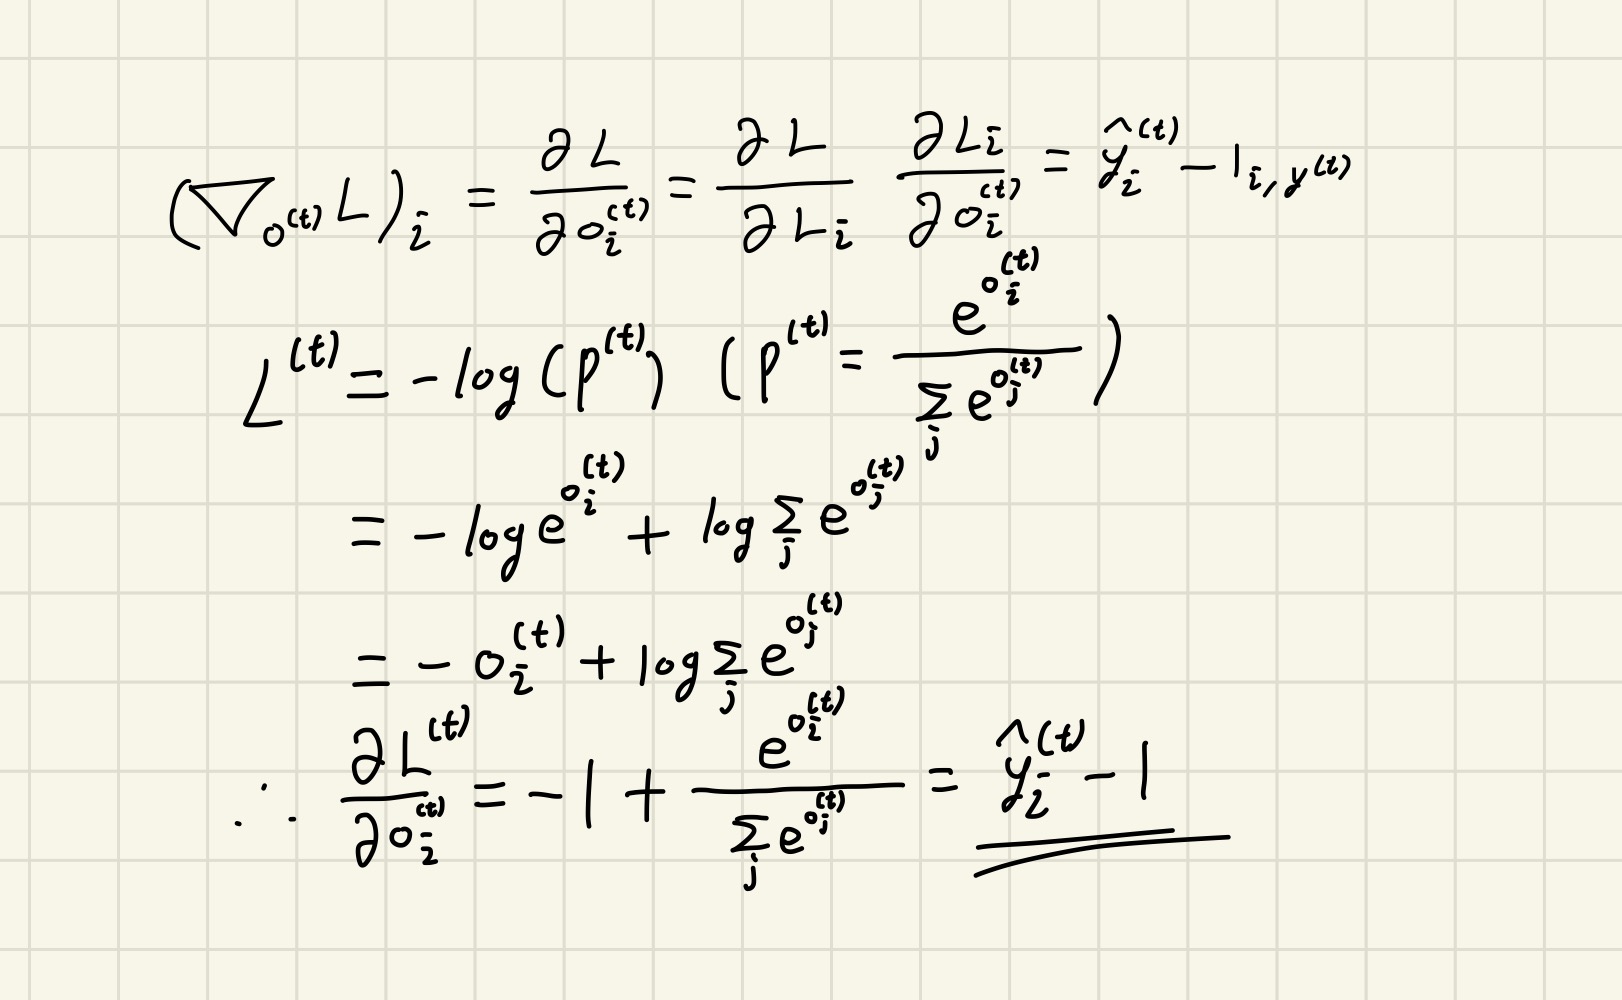 (∇_{o^{(t)}} L)_i = ∂L/∂o_i^{(t)} = ∂L/∂L_i ∂L_i/∂o_i^{(t)} = ŷ_i^{(t)} - 1_{i, y^{(t)}}
L^{(t)} = -log(p^{(t)}) (p^{(t)} = e^{o_i^{(t)}} / Σ_j e^{o_j^{(t)}})
= -log e^{o_i^{(t)}} + log Σ_j e^{o_j^{(t)}}
= -o_i^{(t)} + log Σ_j e^{o_j^{(t)}}
∴ ∂L^{(t)}/∂o_i^{(t)} = -1 + e^{o_i^{(t)}} / Σ_j e^{o_j^{(t)}} = ŷ_i^{(t)} - 1